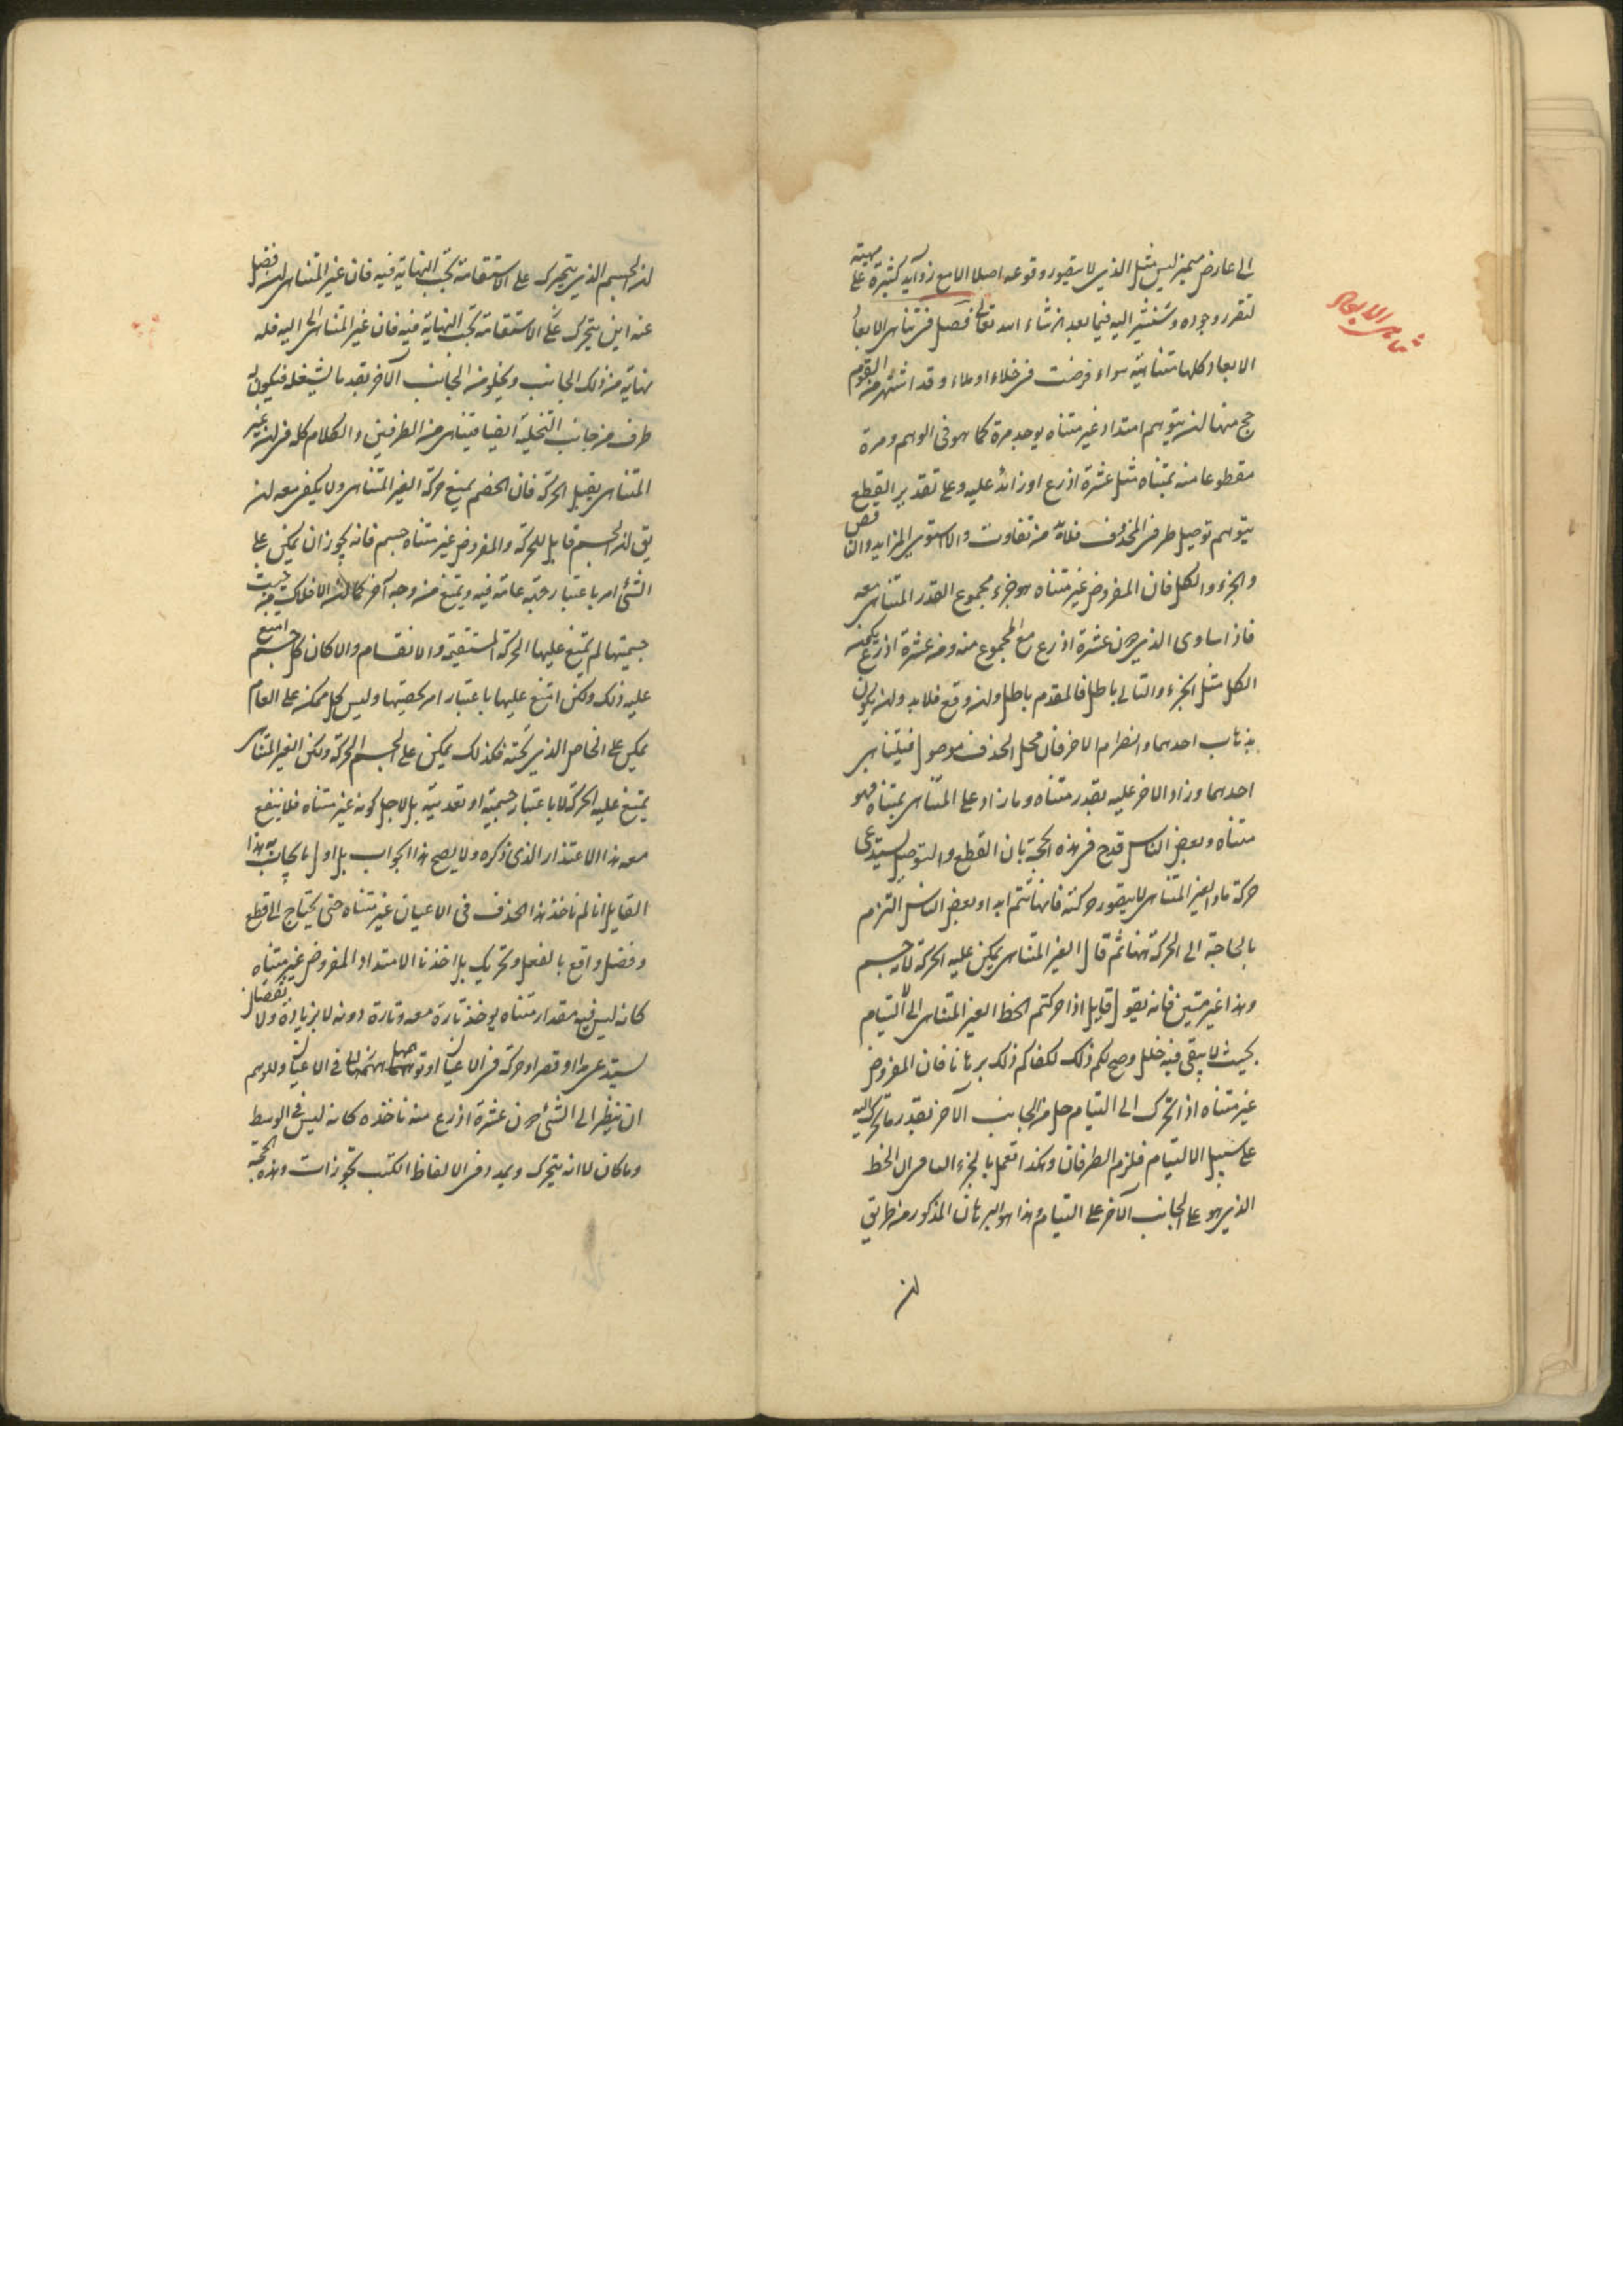 تناهى الابعاد
الى عارض مميز ليس مثل الذى لا يتصور وقوعه اصلا الا مع زوايد كثيرة على مهيته
لتقرر وجوده وسنشير اليه فيما بعد ان شاء الله تعالى فصل فى تناهى الابعاد
الابعاد كلها متناهية سواء فرضت فى خلاء او ملاء وقد اشتهر من القوم
حجج منها ان يتوهم امتداد غير متناه يوجد مرة كما هو فى الوهم ومرة
مقطوعا منه بمتناه مثل عشرة اذرع او زائد عليه وعلى تقدير القطع
يتوهم توصيل طرفى المحذوف فلابد من تفاوت والا استوى الزايد والناقص
والجزء والكل فان المفروض غير متناه هو جزء مجموع القدر المتناهى معه
فاذا ساوى الذى دون عشرة اذرع مع المجموع منه ومن عشرة اذرع
الكل مثل الجزء والتالى باطل فالمقدم باطل وان وقع فلابد وان يكون
بذهاب احدهما وانصرام الاخر فان محل الحذف موصول فيتناهى
احدهما وزاد الاخر عليه بقدر متناه وما زاد على المتناهى بمتناه فهو
متناه وبعض الناس قدح فى هذه الحجة بان القطع والتوصيل يستدعى
حركة ما والغير المتناهى لا يتصور حركته وبعض الناس التزم
بالحاجة الى الحركة ههنا ثم قال الغير المتناهى يمكن عليه الحركة لانه جسم
وهذا غير متين فانه يقول قايل اذا حركتم الخط الغير المتناهى الى التيام
بحيث لا يبقى فيه خلل وصح لكم ذلك لكفاكم ذلك برهانا فان المفروض
غير متناه اذا تحرك الى التيام خلى من الجانب الآخر بقدر ما تحرك اليه
على سبيل الالتيام فلزم الطرفان وهكذا تعمل بالجزء الباقى من الخط
الذى هو على الجانب الآخر على التيام وهذا هو البرهان المذكور من طريق
ان
ان الجسم الذى يتحرك على الاستقامة يجب النهاية فيه فان غير المتناهى ان فضل
عنه اين يتحرك على الاستقامة يجب النهاية فيه فان غير المتناهى اليه فله
نهاية من ذلك الجانب ويخلو من الجانب الآخر بقدر ما يشغله فيكون له
طرف من جانب التخلية ايضا فيتناهى من الطرفين والكلام كله فى ان غير
المتناهى يقبل الحركة فان الخصم يمنع حركة الغير المتناهى ولا يكفى معه ان
يق ان الجسم قابل للحركة والمفروض غير متناه جسم فانه يجوز ان يمكن على
الشئ امر باعتبار جهة عامة فيه ويمتنع من وجه آخر كما ان الافلاك من حيث
جسميتها لم يمتنع عليها الحركة المستقيمة والانقسام والا كان كل جسم امتنع
عليه ذلك ولكن امتنع عليها باعتبار امر يخصها وليس كل ممكن على العام
يمكن على الخاص الذى تحته فكذلك يمكن على الجسم الحركة ولكن الغير المتناهى
يمتنع عليه الحركة لا باعتبار جسمية او بعدية بل لاجل كونه غير متناه فلا ينفع
معه هذا الاعتذار الذى ذكره ولا يصح هذا الجواب بل اول ما يجاب به هذا
القايل انا لم ناخذ هذا الحذف فى الاعيان غير متناه حتى يحتاج الى قطع
وفصل واقع بالفعل وتحريك بل اخذنا الامتداد المفروض غير متناه
كانه ليس فيه مقدار متناه يوخذ تارة معه وتارة دونه لا بزيادة ولا نقصان
يستدعى مدا وقصرا وحركة فى الاعيان او فى الاعيان وللوهم
ان ينظر الى الشئ دون عشرة اذرع منه ناخذه كانه ليس فى الوسط
وما كان لا انه يتحرك ويمد وفى الالفاظ الكتب تجوزات وهذه الحجة